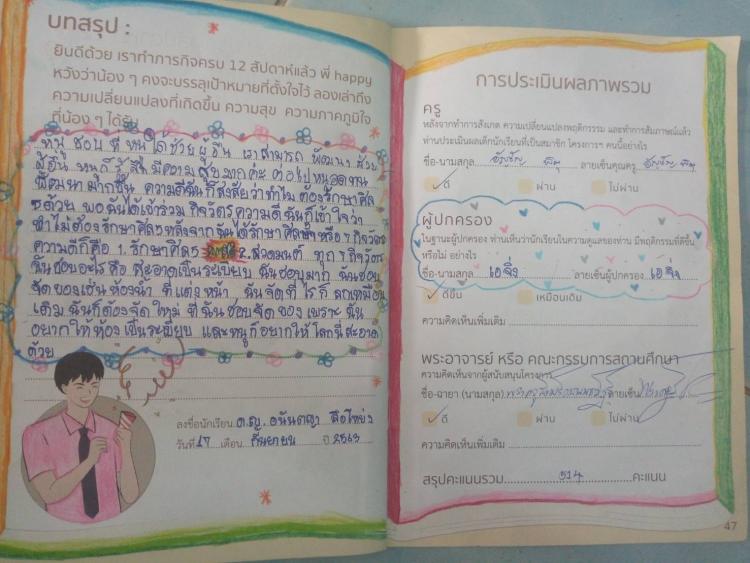 บทสรุป :
ยินดีด้วย เราทำภารกิจครบ 12 สัปดาห์แล้ว พี่ happy
หวังว่าน้อง ๆ คงจะบรรลุเป้าหมายที่ตั้งใจไว้ ลองเล่าถึง
ความเปลี่ยนแปลงที่เกิดขึ้น ความสุข ความภาคภูมิใจ
ที่น้อง ๆ ได้รับ
หนู ชอบ ที่ หนู ได้ช่วย ผู้อื่น เราสามารถ พัฒนา ด้วย
ผู้อื่น หนูก็รู้สึก มีความสุขมากค่ะ ต่อไปหนู
พัฒนามากขึ้น ความดีฉันก็สงสัยว่าทำไม ต้องรักษาศีล
5 ด้วย พอฉันได้เข้าร่วม กิจวัตรความดี ฉันก็เข้าใจว่า
ทำไมต้องรักษาศีล5 หลังจากฉันได้รักษาศีล กิจวัตร
ความดีก็คือ 1. รักษาศีล5 2. สวดมนต์ ทุก ๆ กิจวัตร
ฉันชอบอะไร คือ สะอาดเป็นระเบียบ ฉันชอบมาก ฉันชอบ
จัดของเช่น ห้องน้ำ ที่แต่งหน้า ฉันจัดที่ไรก็ เหมือน
เดิม ฉันก็ต้องจัดใหม่ ที่ฉันชอบจัดของ เพราะ ฉัน
อยากให้ห้องเป็นระเบียบ และหนูก็อยากให้โลกนี้สะอาด
ด้วย
ลงชื่อนักเรียน ด.ญ. อนันตญา
วันที่ 17 เดือน กันยายน ปี 2563
การประเมินผลภาพรวม
ครู
หลังจากทำการสังเกต ความเปลี่ยนแปลงพฤติกรรม และทำการสัมภาษณ์แล้ว
ท่านประเมินผลเด็กนักเรียนที่เป็นสมาชิก โครงการฯ คนนี้อย่างไร
ชื่อ-นามสกุล ลายเซ็นคุณครู
ดี ผ่าน ไม่ผ่าน
ผู้ปกครอง
ในฐานะผู้ปกครอง ท่านเห็นว่านักเรียนในความดูแลของท่าน มีพฤติกรรมที่ดีขึ้น
หรือไม่ อย่างไร
ชื่อ-นามสกุล เอ ลายเซ็นผู้ปกครอง เอ
ดีขึ้น เหมือนเดิม
ความคิดเห็นเพิ่มเติม
พระอาจารย์ หรือ คณะกรรมการสถานศึกษา
ความคิดเห็นจากผู้สนับสนุนโครงการ
ชื่อ-ฉายา (นามสกุล) ลายเซ็น
ดี ผ่าน ไม่ผ่าน
ความคิดเห็นเพิ่มเติม
สรุปคะแนนรวม 514 คะแนน
47